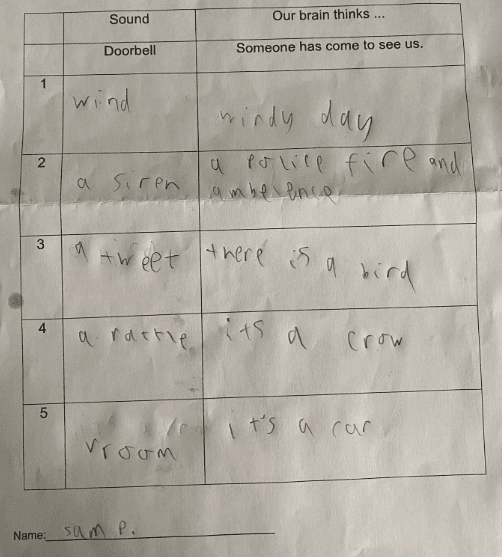 Sound Our brain thinks ...
Doorbell Someone has come to see us.
1 wind windy day
2 a siren a police fire and
ambelence
3 a tweet there is a bird
4 a rattle its a crow
5 vroom it's a car
Name: sam P.